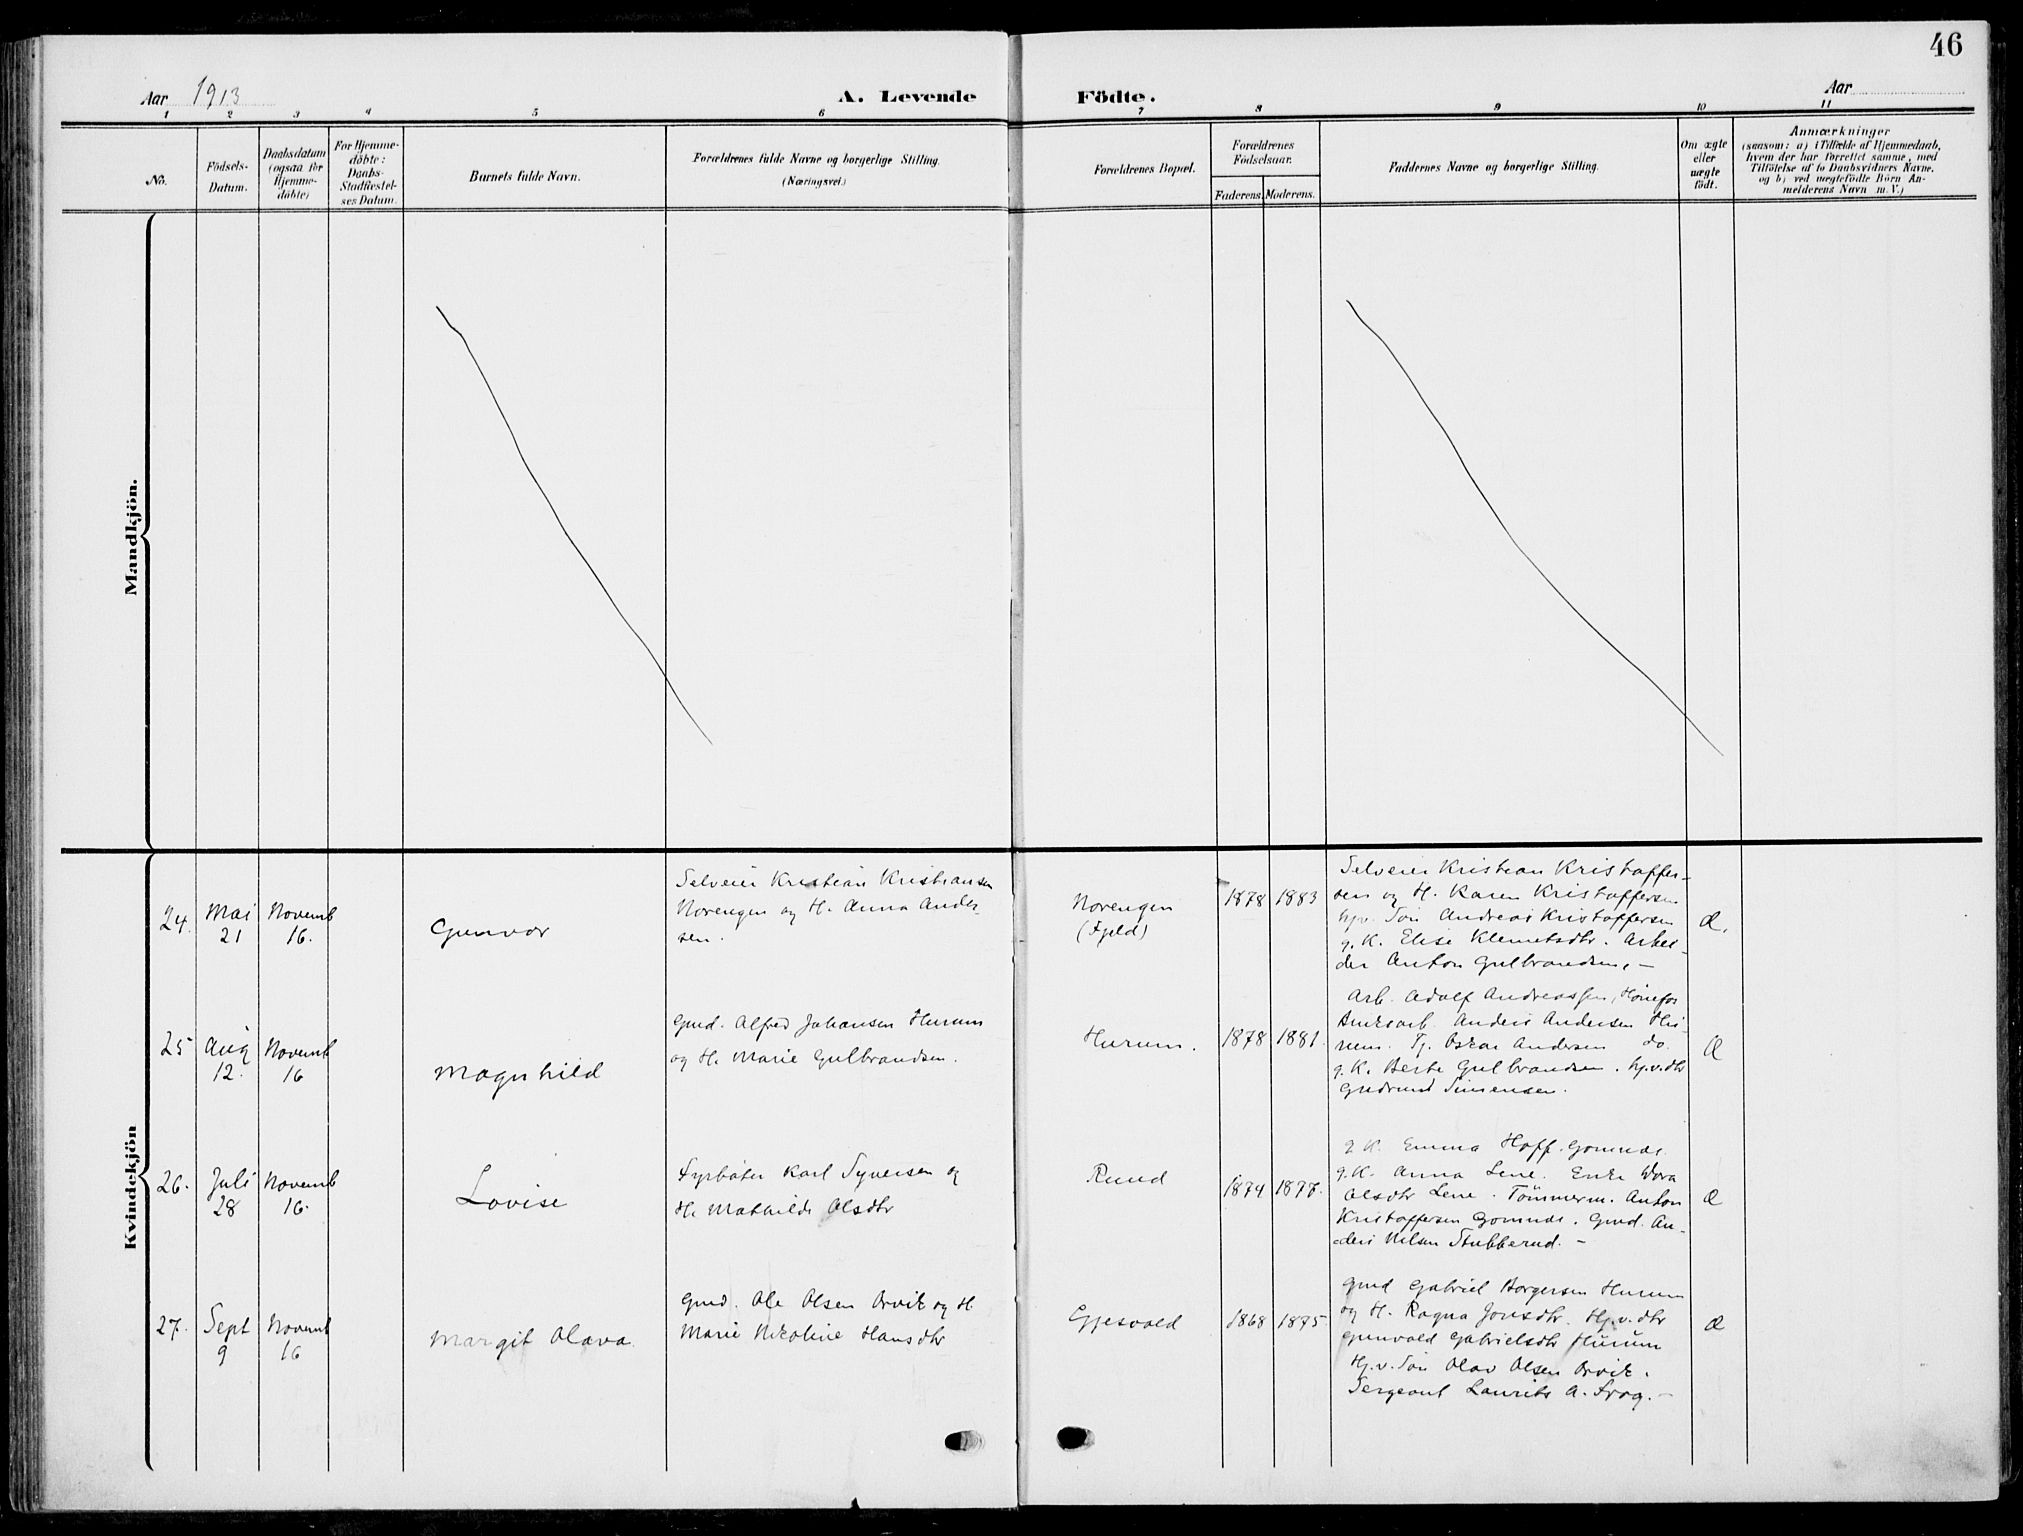 46
Aar 1913
A. Levende Födte.
Aar
1 2 3 4 5 6 7 8 9 10 11
No.
Födsels-
Datum.
Daabsdatum
(ogsaa for
Hjemme-
döbte)
For Hjemme-
döbte:
Daabs-
Stadfæstel-
ses Datum.
Barnets fulde Navn.
Forældrenes fulde Navne og borgerlige Stilling.
(Næringsvei.)
Forældrenes Bopæl.
Forældrenes
Födselsaar.
Faderens. Moderens.
Faddernes Navne og borgerlige Stilling.
Om ægte
eller
uægte
födt.
Anmærkninger
(saasom: a) i Tilfælde af Hjemmedaab,
hvem der har forrettet samme, med
Tilföielse af to Daabsvidners Navne,
og b) ved uægtefödte Börn An-
melderens Navn m. V.)
Mandkjön.
Kvindekjön
24.
Mai
21
Novemb
16.
Gunvor
Selveier Kristian Kristiansen
Norengen og H. Anna Ander-
sen.
Norengen
(Fjeld)
1878 1883
Selveier Kristian Kristoffer-
sen og H. Karen Kristoffersen
hjv. Søn Andreas Kristoffersen
g. K. Elise Klemetsdtr. Arbei-
der Anton Gulbrandsen, –
Æ.
25
Aug
12.
Novemb
16
Magnhild
Gmd. Alfred Johansen Hurum
og H. Marie Gulbrandsen.
Hurum.
1878 1881.
Arb. Adolf Andreassen, Hønefos
Anders Andersen Hu-
rum. Tj. Oskar Andersen do.
g. K. Berte Gulbrandsen. hj.v. dtr
Gudrund Simensen.
Æ
26.
Juli
28
Novemb
16.
Lovise
Fyrbøter Karl Syversen og
H. Mathilde Olsdtr
Rund
1874 1877.
g K. Emma Hoff. Gomnæs.
g. K. Anna Lene. Enke Dora
Olsdtr Lene. Tömmerm. Anton
Kristoffersen Gomnæs. Gmd. An-
ders Nilsen Stubberud. –
Æ
27.
Sept
9
Novemb
16
Margit Olava
Gmd. Ole Olsen Orvik og H.
Marie Nicoline Hansdtr
Gjesvold
1868 1875.
Gmd Gabriel Borgersen Hurum
og H. Ragna Jonsdtr. Hj.v. dtr
Gunvald Gabrielsdtr Hurum
Hj.v. Søn Olav Olsen Orvik.
Sergeant Laurits A. Frog. –
Æ